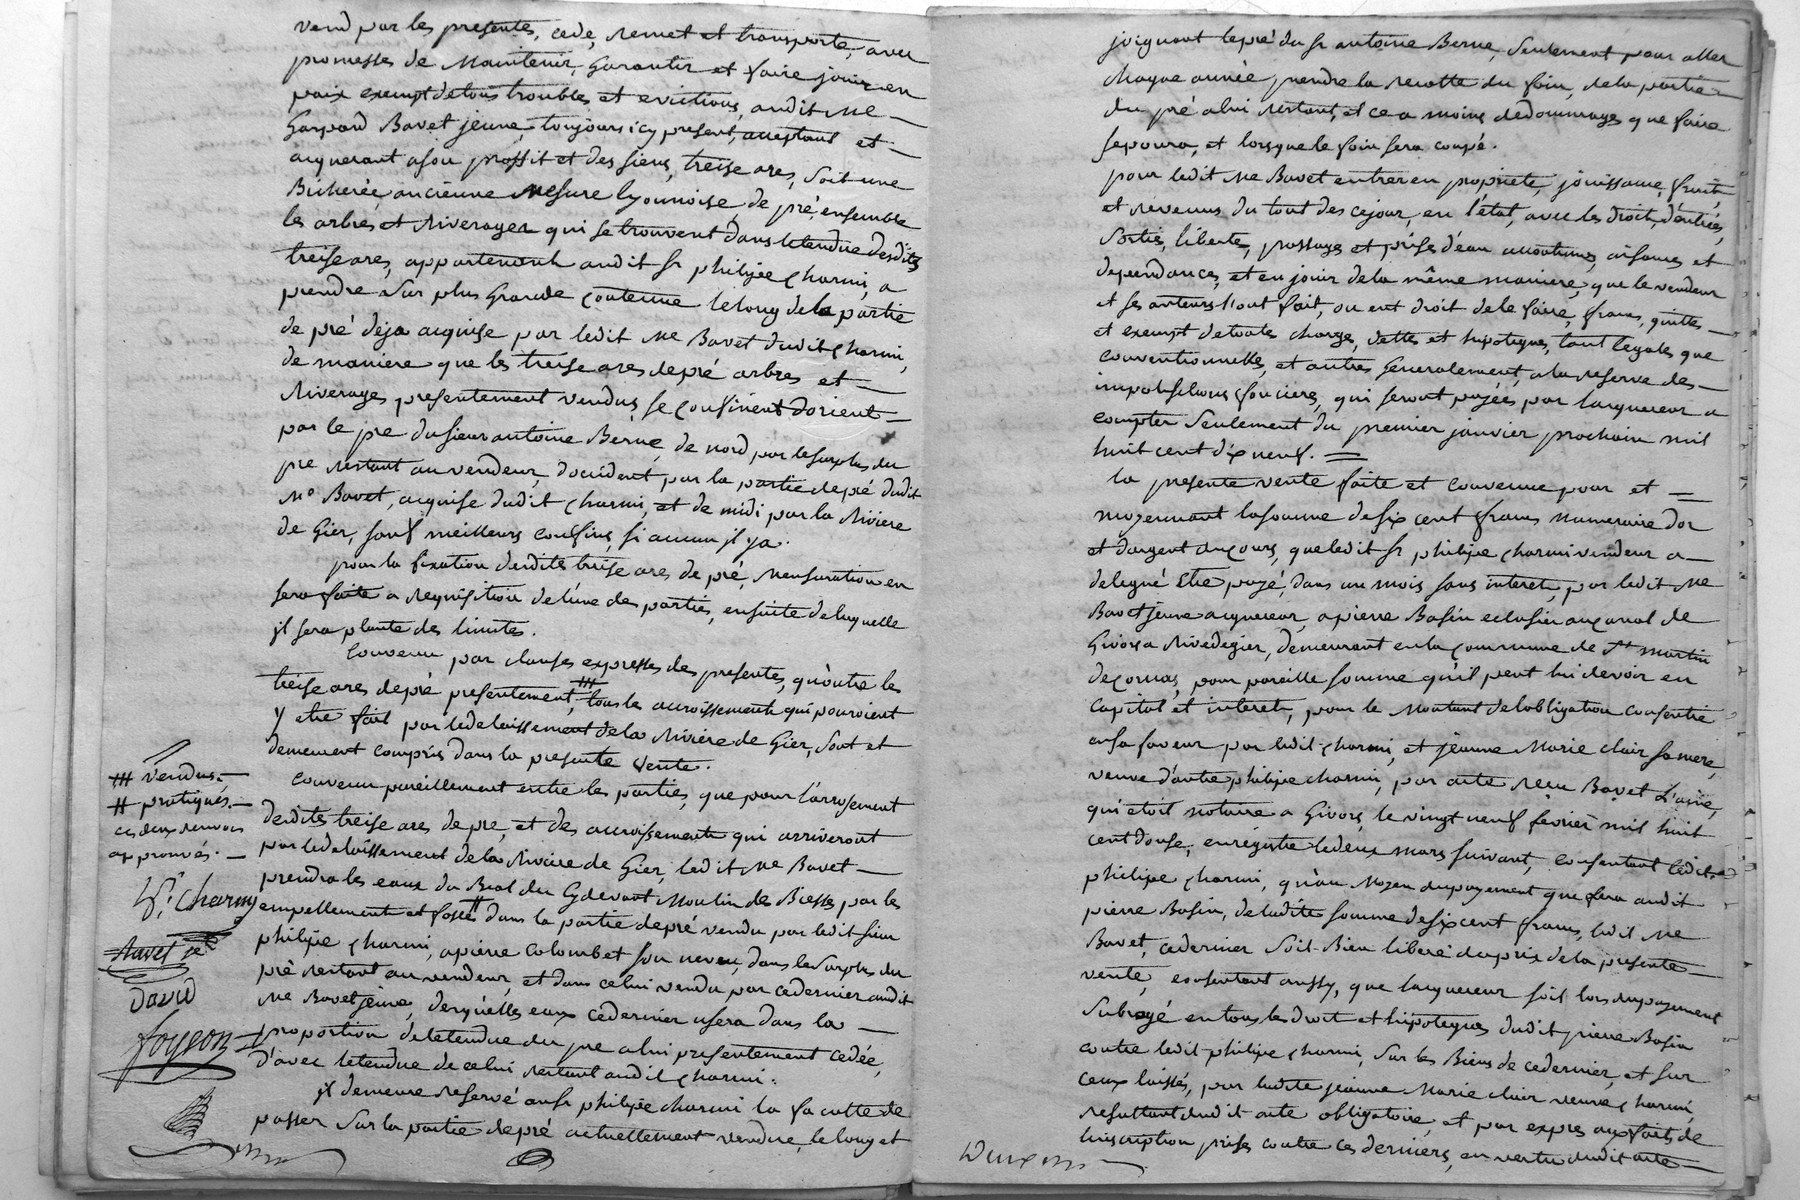 vend par les presentes, cede, remet et transporte, avec
promesses de Maintenir, Garantir et faire jouir en
paix exempt de tous troubles et evictions, audit Me
Gaspard Bavet jeune, toujours icy present, acceptant et
acquerant a son proffit et des siens, treise ares, soit une
Bicherée, anciènne Mesure lyonnoise, de pré, ensemble
les arbres et Riverages qui se trouvent dans letendüe desdits
treise ares, appartenant audit Sr philipe charmi, a
prendre sur plus Grande contenue le long de la partie
de pré déja acquise par ledit Me Bavet dudit charmi,
de maniere que les treise ares de pré arbres et
Riverages presentement vendus, se confinent d'orient
par le pre du sieur antoine Berne, de nord par le surplus du
pre restant au vendeur, d'occident par la partie de pré dudit
Me Bavet, acquise dudit charmi, et de midi par la Riviere
de Gier, sauf meilleurs confins, si aucun il y a.
pour la fixation desdits treise ares de pré, Mensuration en
sera faite a requisition de l'une des parties, ensuite de laquelle
il sera planté des limites.
Convenu par clauses expresses des presentes, qu'outre les
treise ares de pré presentement, ⧻ tous les accroissements qui pouroient
y etre fait par le delaissement de la Riviere de Gier, sont et
demeurent compris dans la presente vente.
Convenu pareillement entre les parties, que pour l'arrosement
desdits treise ares de pré, et des accroissements qui arriveront
par le delaissement de la Riviere de Gier, ledit Me Bavet
prendra les eaux du Bial du Cydevant Moulin de Biesses par les
empellement et fossé ⧺ dans la partie de pré vendu par ledit sieur
philipe charmi, a pierre Colombet son neveu, dans le surplus du
pré restant au vendeur, et dans celui vendu par ce dernier audit
Me Bavet jeune, desquelles eaux ce dernier usera dans la
proportion de letendue du pre a lui presentement cedée,
d'avec letendue de celui restant audit charmi.
il demeure reservé au Sr philipe charmi la faculté de
passer sur la partie de pré actuellement vendue, le long et
⧻ vendus,
⧺ pratiqués.
ces deux renvois
approuvés.
Charmy
Bavet
David
foyeon
joignant le pré du Sr antoine Berne, seulement pour aller
chaque année, prendre la recolte du foin, de la partie
du pré a lui restant, et ce a moins de dommages que faire
se poura, et lorsque le foin sera coupé.
pour ledit Me Bavet entrer en propriete, jouissance, fruits
et revenus du tout des ce jour, en l'état, avec les droits, d'entrées,
sorties, libertés, passages et prise d'eau accoutumés, aisances et
dependances, et en jouir de la même maniere, que le vendeur
et ses auteurs l'ont fait, ou ont droit de le faire, francs, quittes
et exempt de toute charge, dettes et hipoteques, tant legales que
conventionnelles, et autres Generalement, a la reserve des
impositions foncieres, qui seront payées par l'acquereur a
compter seulement du premier janvier prochain mil
huit cent dix neuf.
la presente vente faite et convenue pour et
moyennant la somme de six cent francs numeraire d'or
et d'argent du cours, que ledit Sr philipe charmi vendeur a
delegué être payé, dans un mois sans interet, par ledit Me
Bavet jeune acquereur, a pierre Basin eclusier au canal de
Givors a Rivedegier, demeurant en la commune de St martin
de cornas, pour pareille somme qu'il peut lui devoir en
capital et interets, pour le Montant de l'obligation consentie
en sa faveur par ledit charmi, et jeanne Marie clair sa mere,
veuve d'autre philipe charmi, par acte recu Bavet L'ainé,
qui étoit notaire a Givors, le vingt neuf fevrier mil huit
cent douse, enregistré le deux mars suivant, consentant ledit
philipe charmi, qu'au Moyen du payement que fera audit
pierre Basin, de ladite somme de six cent francs, ledit Me
Bavet, ce dernier soit Bien liberé du prix de la presente
vente, consentant aussy, que l'acquereur soit lors du payement
subrogé en tous les droit et hipoteques dudit pierre Basin
contre ledit philipe charmi, sur les Biens de ce dernier, et sur
ceux laissés, par ladite jeanne Marie clair veuve charmi,
resultant dudit acte obligatoire, et par expres aux faits de
linscription prises contre ces derniers, en vertu dudit acte